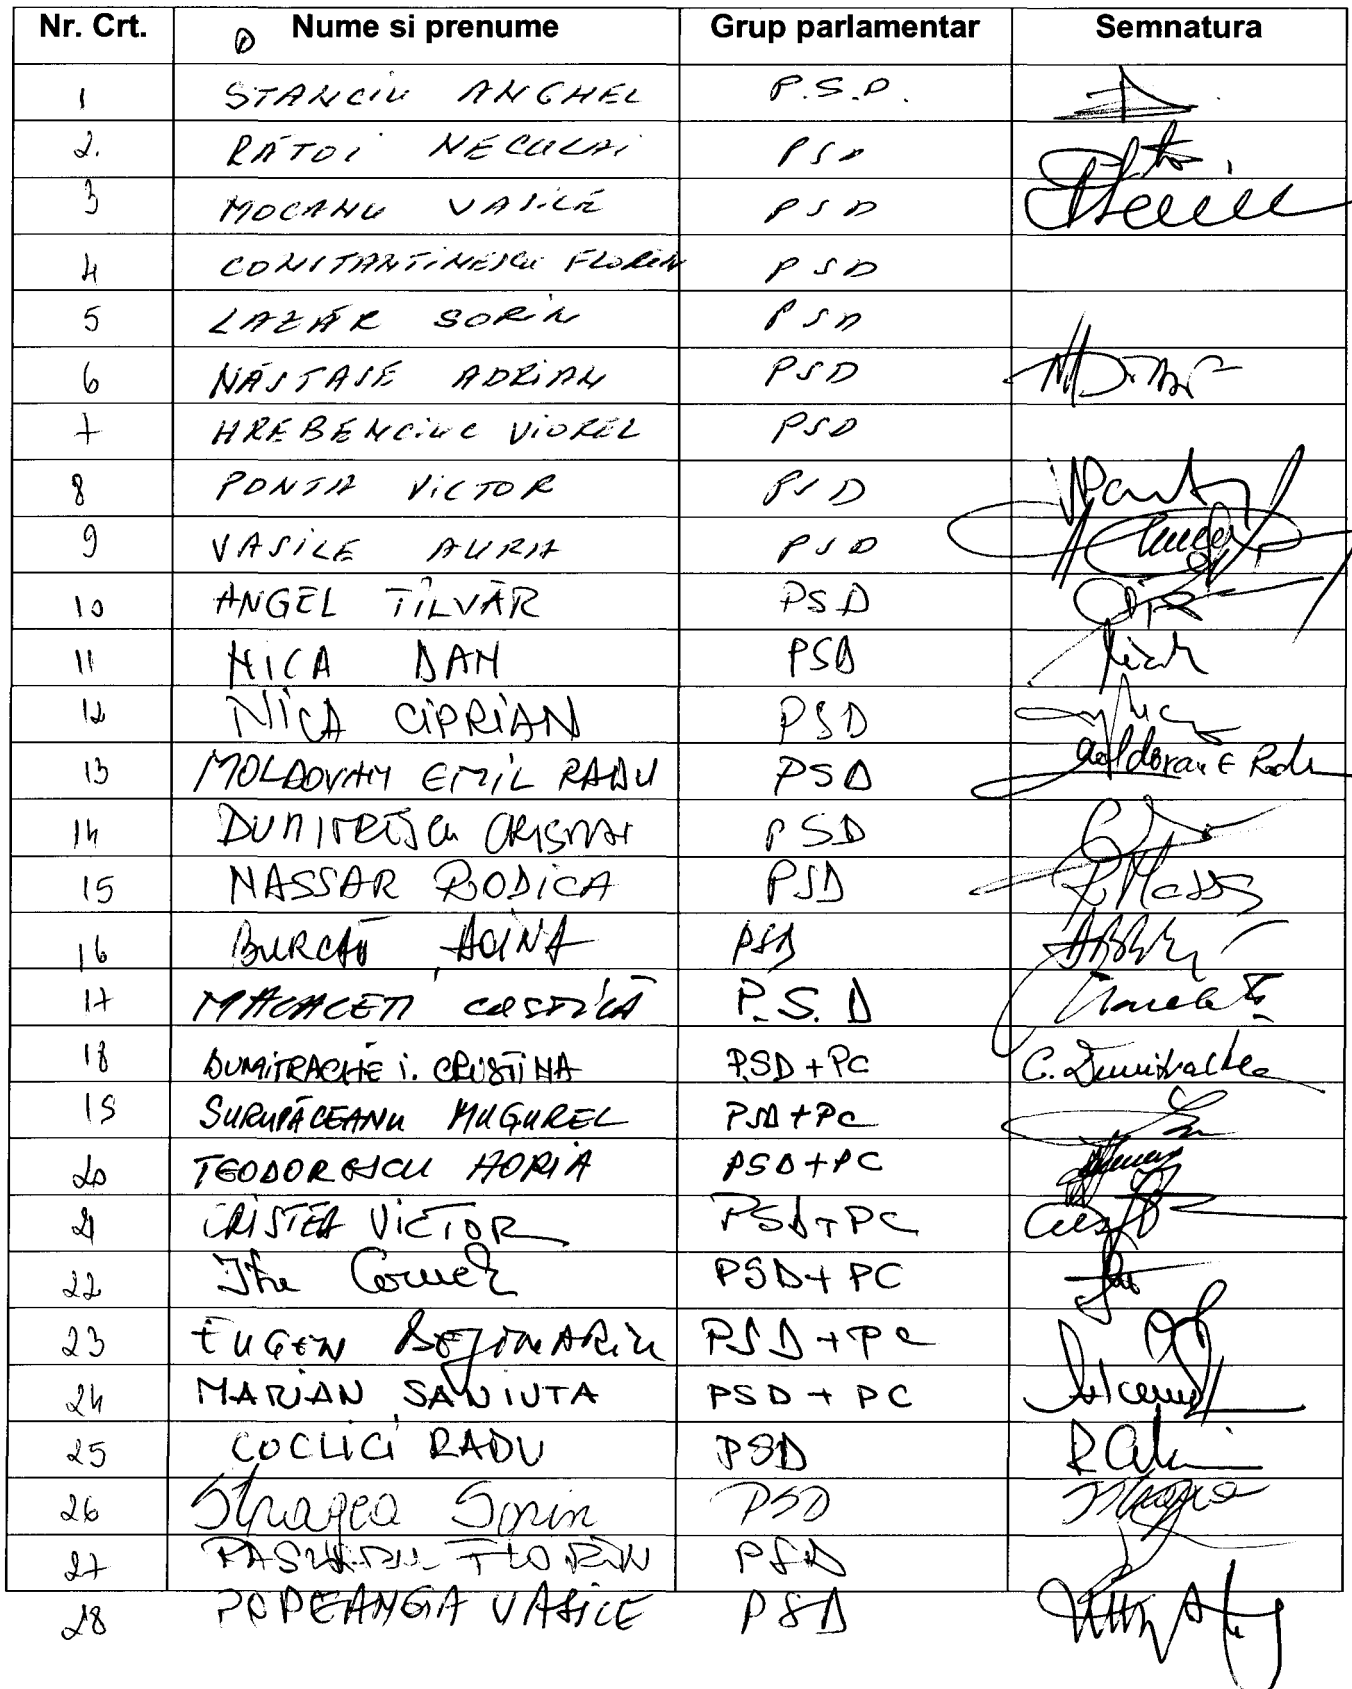 Nr. Crt. Nume si prenume Grup parlamentar Semnatura
1 STANCIU ANGHEL P.S.D.
2. RĂTOI NECULAI PSD
3 MOCANU VASILE PSD
4 CONSTANTINESCU FLORIN PSD
5 LAZĂR SORIN PSD
6 NĂSTASE ADRIAN PSD
7 HREBENCIUC VIOREL PSD
8 PONTA VICTOR PSD
9 VASILE AURA PSD
10 ANGEL TÎLVĂR PSD
11 NICA DAN PSD
12 NICA CIPRIAN PSD
13 MOLDOVAN EMIL RADU PSD Moldovan E Radu
14 DUMITRESCU PSD
15 NASSAR RODICA PSD
16 PSD
17 COSTICĂ P.S.D
18 DUMITRACHE I. CRISTINA PSD+PC C. Dumitrache
19 SURUPĂCEANU MUGUREL PSD+PC
20 TEODORESCU HORIA PSD+PC
21 CRISTEA VICTOR PSD+PC
22 Cornel PSD+PC
23 EUGEN BEJINARIU PSD+PC
24 MARIAN SANIUTA PSD + PC
25 COCLICI RADU PSD
26 Sorin PSD
27 FLORIN PSD
28 POPEANGA VASILE PSD